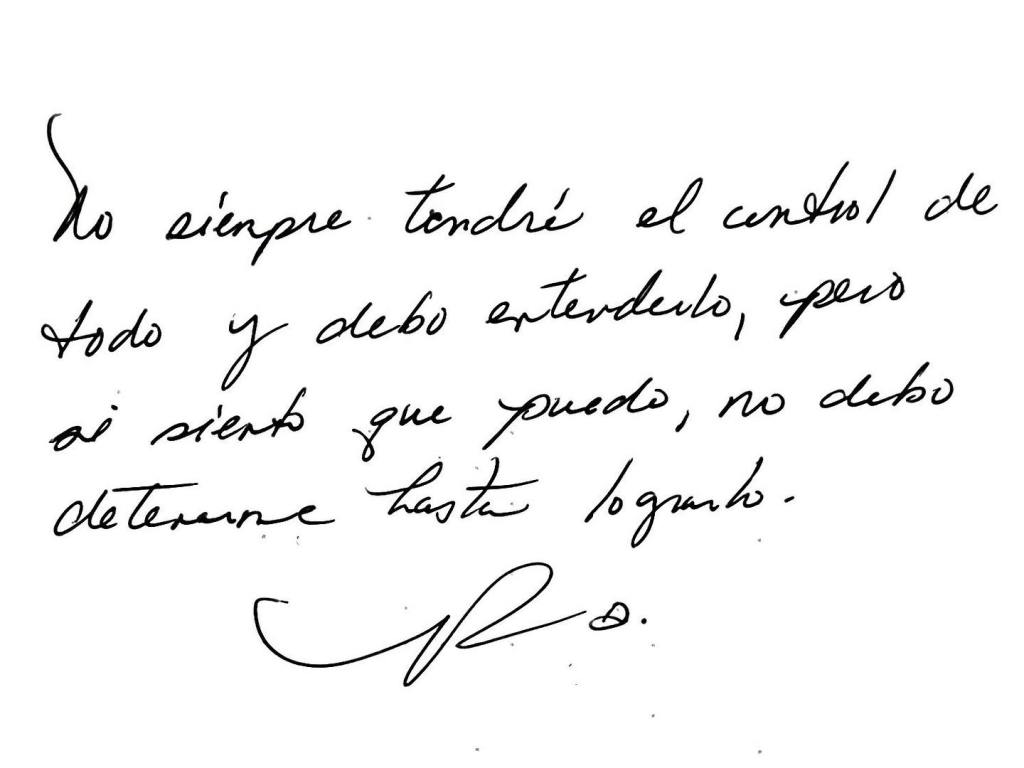 No siempre tendré el control de
todo y debo entenderlo, pero
si siento que puedo, no debo
detenerme hasta lograrlo.